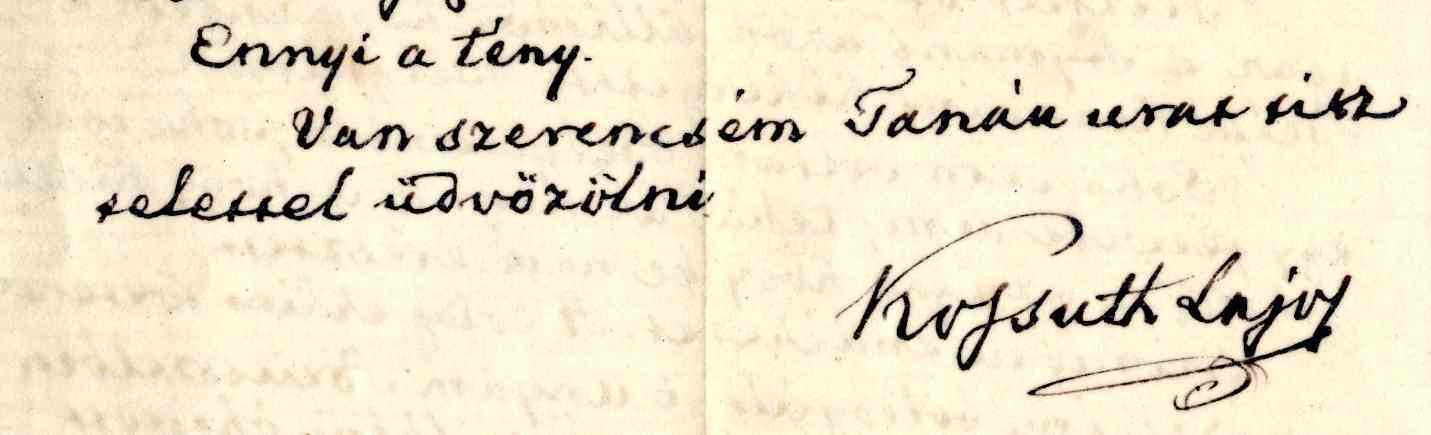 Ennyi a tény.
Van szerencsém Tanár urat tisz
telettel üdvözölni
Kossuth Lajos